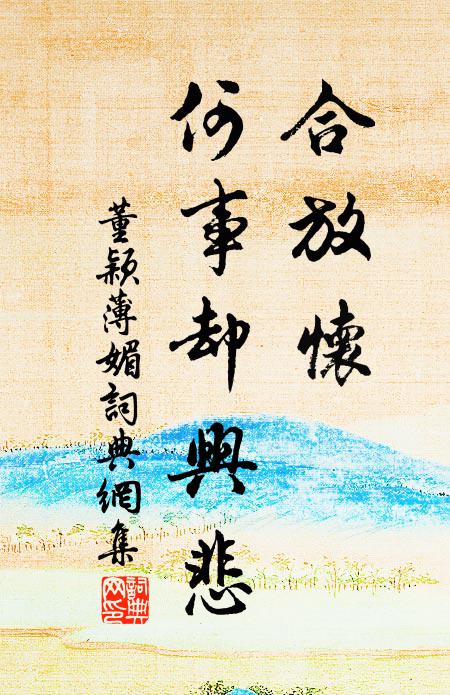 合放懷
何事却興悲
董穎薄媚詞典網集
詞典